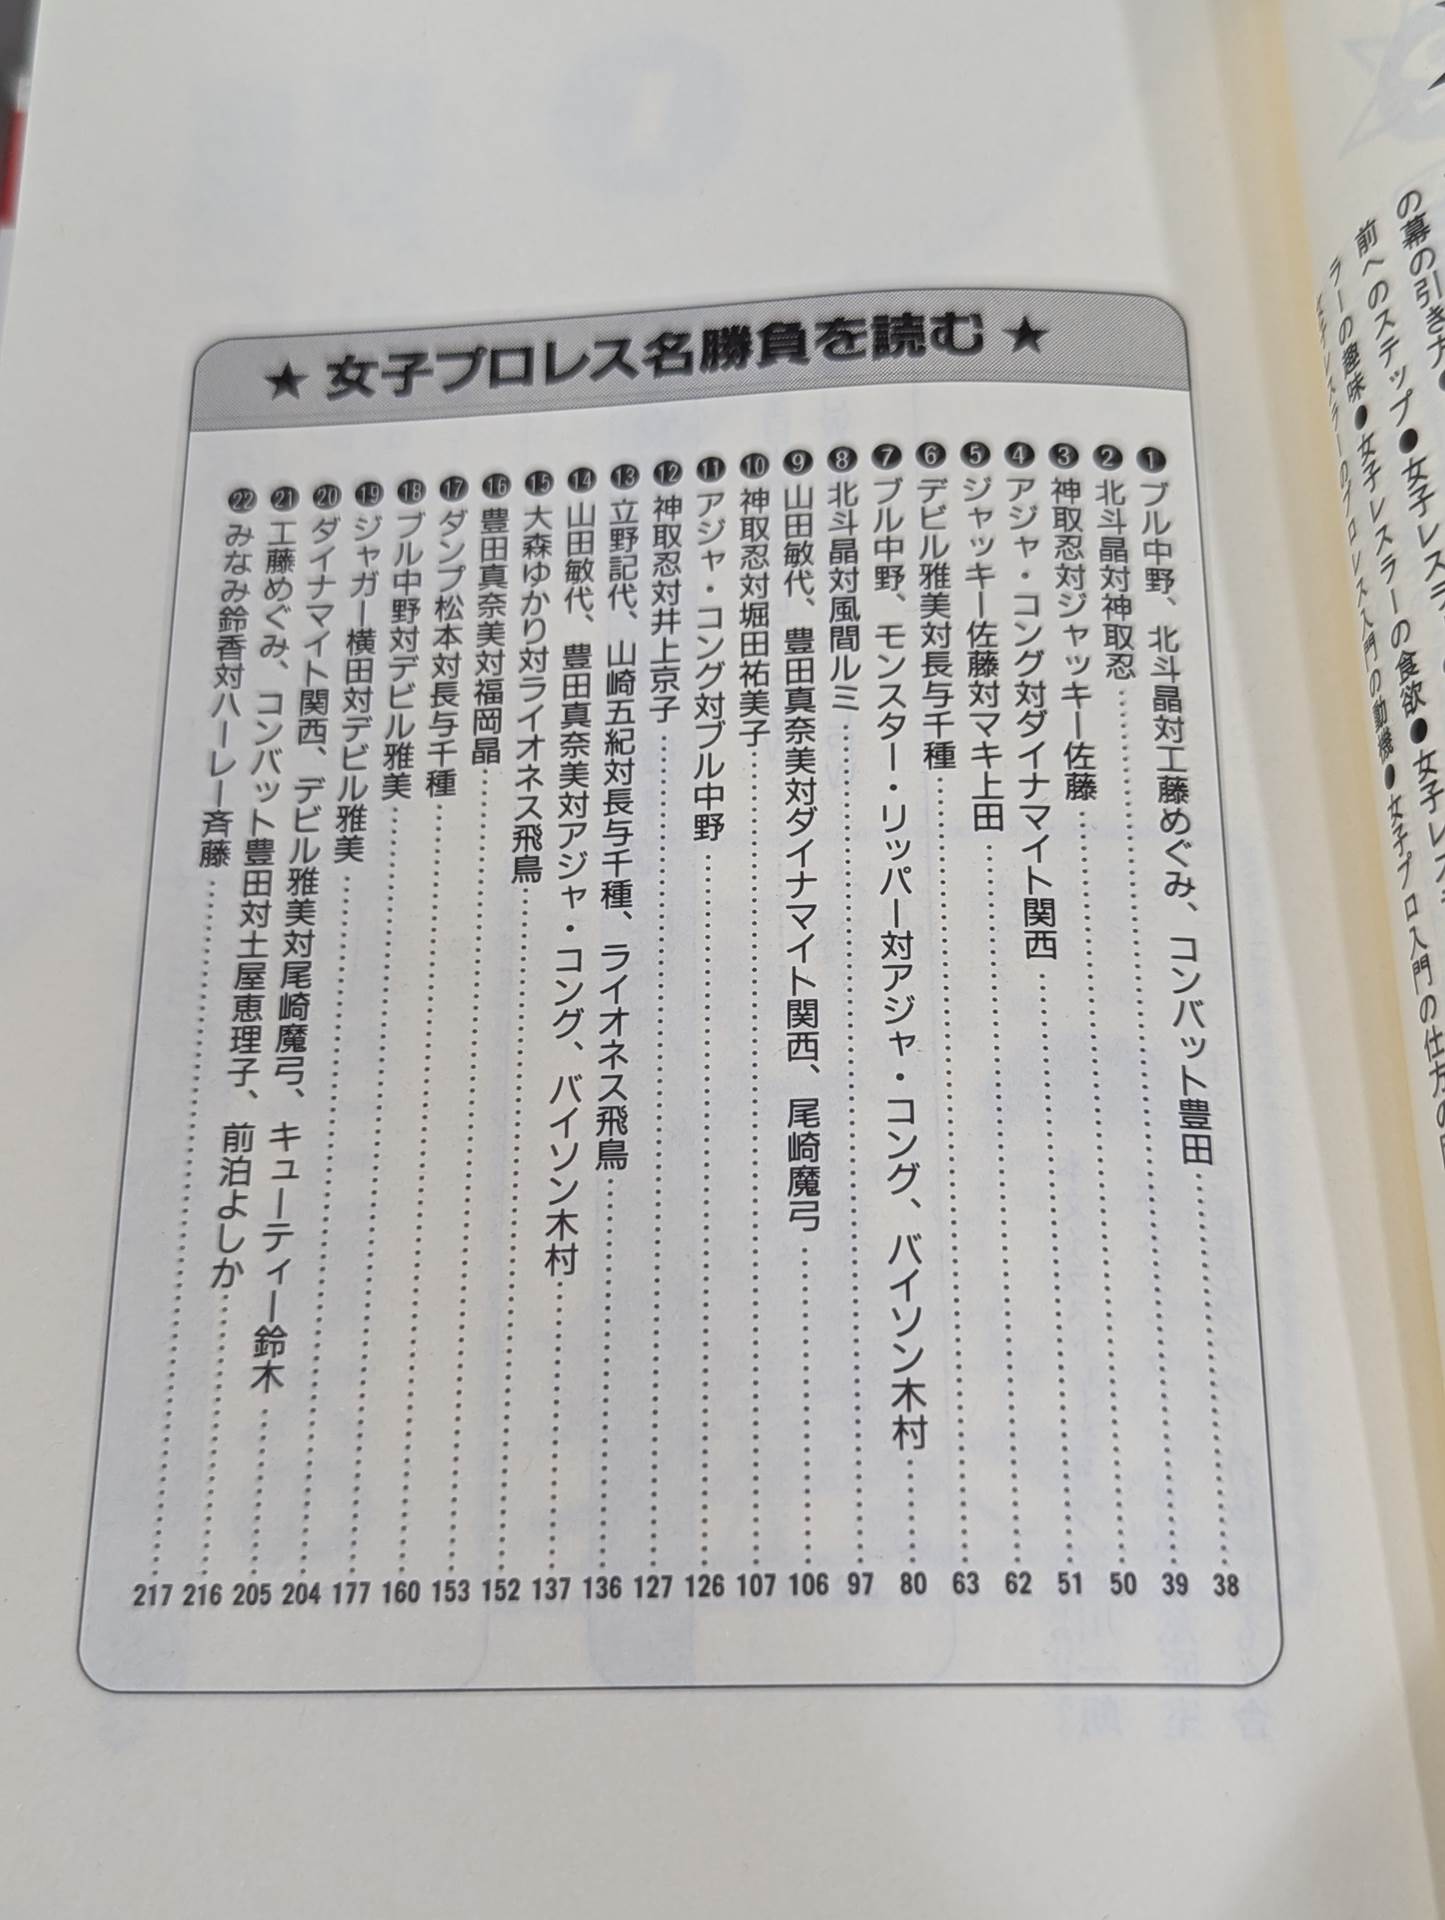 の幕の引き方●女子レスラー
前へのステップ●女子レスラーの食欲●女子レスラー
ラーの趣味●女子レスラーのプロレス入門の動機●女子プロ入門の仕方の
★女子プロレス名勝負を読む★
❶ブル中野、北斗晶対工藤めぐみ、コンバット豊田……38
❷北斗晶対神取忍……39
❸神取忍対ジャッキー佐藤……50
❹アジャ・コング対ダイナマイト関西……51
❺ジャッキー佐藤対マキ上田……62
❻デビル雅美対長与千種……63
❼ブル中野、モンスター・リッパー対アジャ・コング、バイソン木村……80
❽北斗晶対風間ルミ……97
❾山田敏代、豊田真奈美対ダイナマイト関西、尾崎魔弓……106
❿神取忍対堀田祐美子……107
⓫アジャ・コング対ブル中野……126
⓬神取忍対井上京子……127
⓭立野記代、山崎五紀対長与千種、ライオネス飛鳥……136
⓮山田敏代、豊田真奈美対アジャ・コング、バイソン木村……137
⓯大森ゆかり対ライオネス飛鳥……152
⓰豊田真奈美対福岡晶……153
⓱ダンプ松本対長与千種……160
⓲ブル中野対デビル雅美……177
⓳ジャガー横田対デビル雅美……204
⓴ダイナマイト関西、デビル雅美対尾崎魔弓、キューティー鈴木……205
㉑工藤めぐみ、コンバット豊田対土屋恵理子、前泊よしか……216
㉒みなみ鈴香対ハーレー斉藤……217